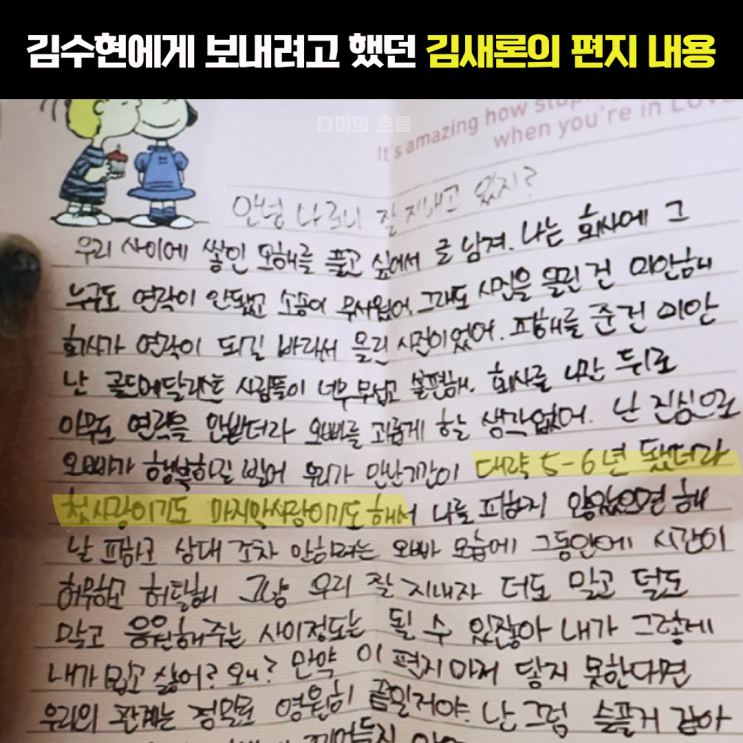 김수현에게 보내려고 했던 김새론의 편지 내용
디미의 흐름
It's amazing how stup
when you're in LOVE
안녕 나 론이 잘 지내고 있지?
우리 사이에 쌓인 오해를 풀고 싶어서 글 남겨. 나는 회사에 그
누구도 연락이 안됐고 소송이 무서웠어. 그래도 사진을 올린 건 미안해
회사가 연락이 되길 바라서 올린 사진이었어. 피해를 준건 미안
난 골드메달리스트 사람들이 너무 무섭고 불편해. 회사를 나간 뒤로
아무도 연락을 안받더라 오빠를 괴롭게 할 생각없어. 난 진심으로
오빠가 행복하길 빌어 우리가 만난기간이 대략 5-6년 됐더라
첫사랑이기도 마지막사랑이기도 해서 나를 피하지 않았으면 해
날 피하고 상대조차 안하려는 오빠 모습에 그동안에 시간이
허무하고 허탈해 그냥 우리 잘 지내자 더도 말고 덜도
말고 응원해주는 사이정도는 될 수 있잖아 내가 그렇게
내가 밉고 싫어? 왜? 만약 이 편지마저 닿지 못한다면
우리의 관계는 정말로 영원히 끝일거야. 난 그럼 슬플거 같아